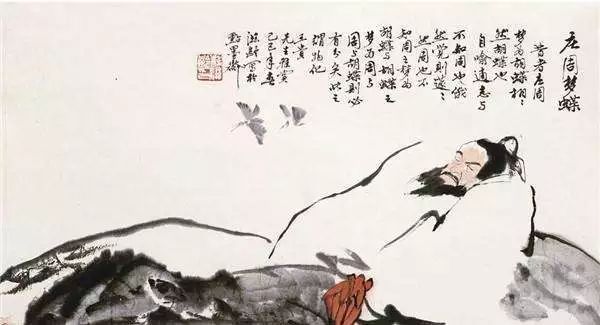 庄周梦蝶
昔者庄周
梦为胡蝶栩々
然胡蝶也
自喻适志与
不知周也俄
然觉则蘧々
然周也不
知周之梦为
胡蝶与胡蝶之
梦为周与
周与胡蝶则必
有分矣此之
谓物化
先生雅赏
己巳年春
写於
點墨斋